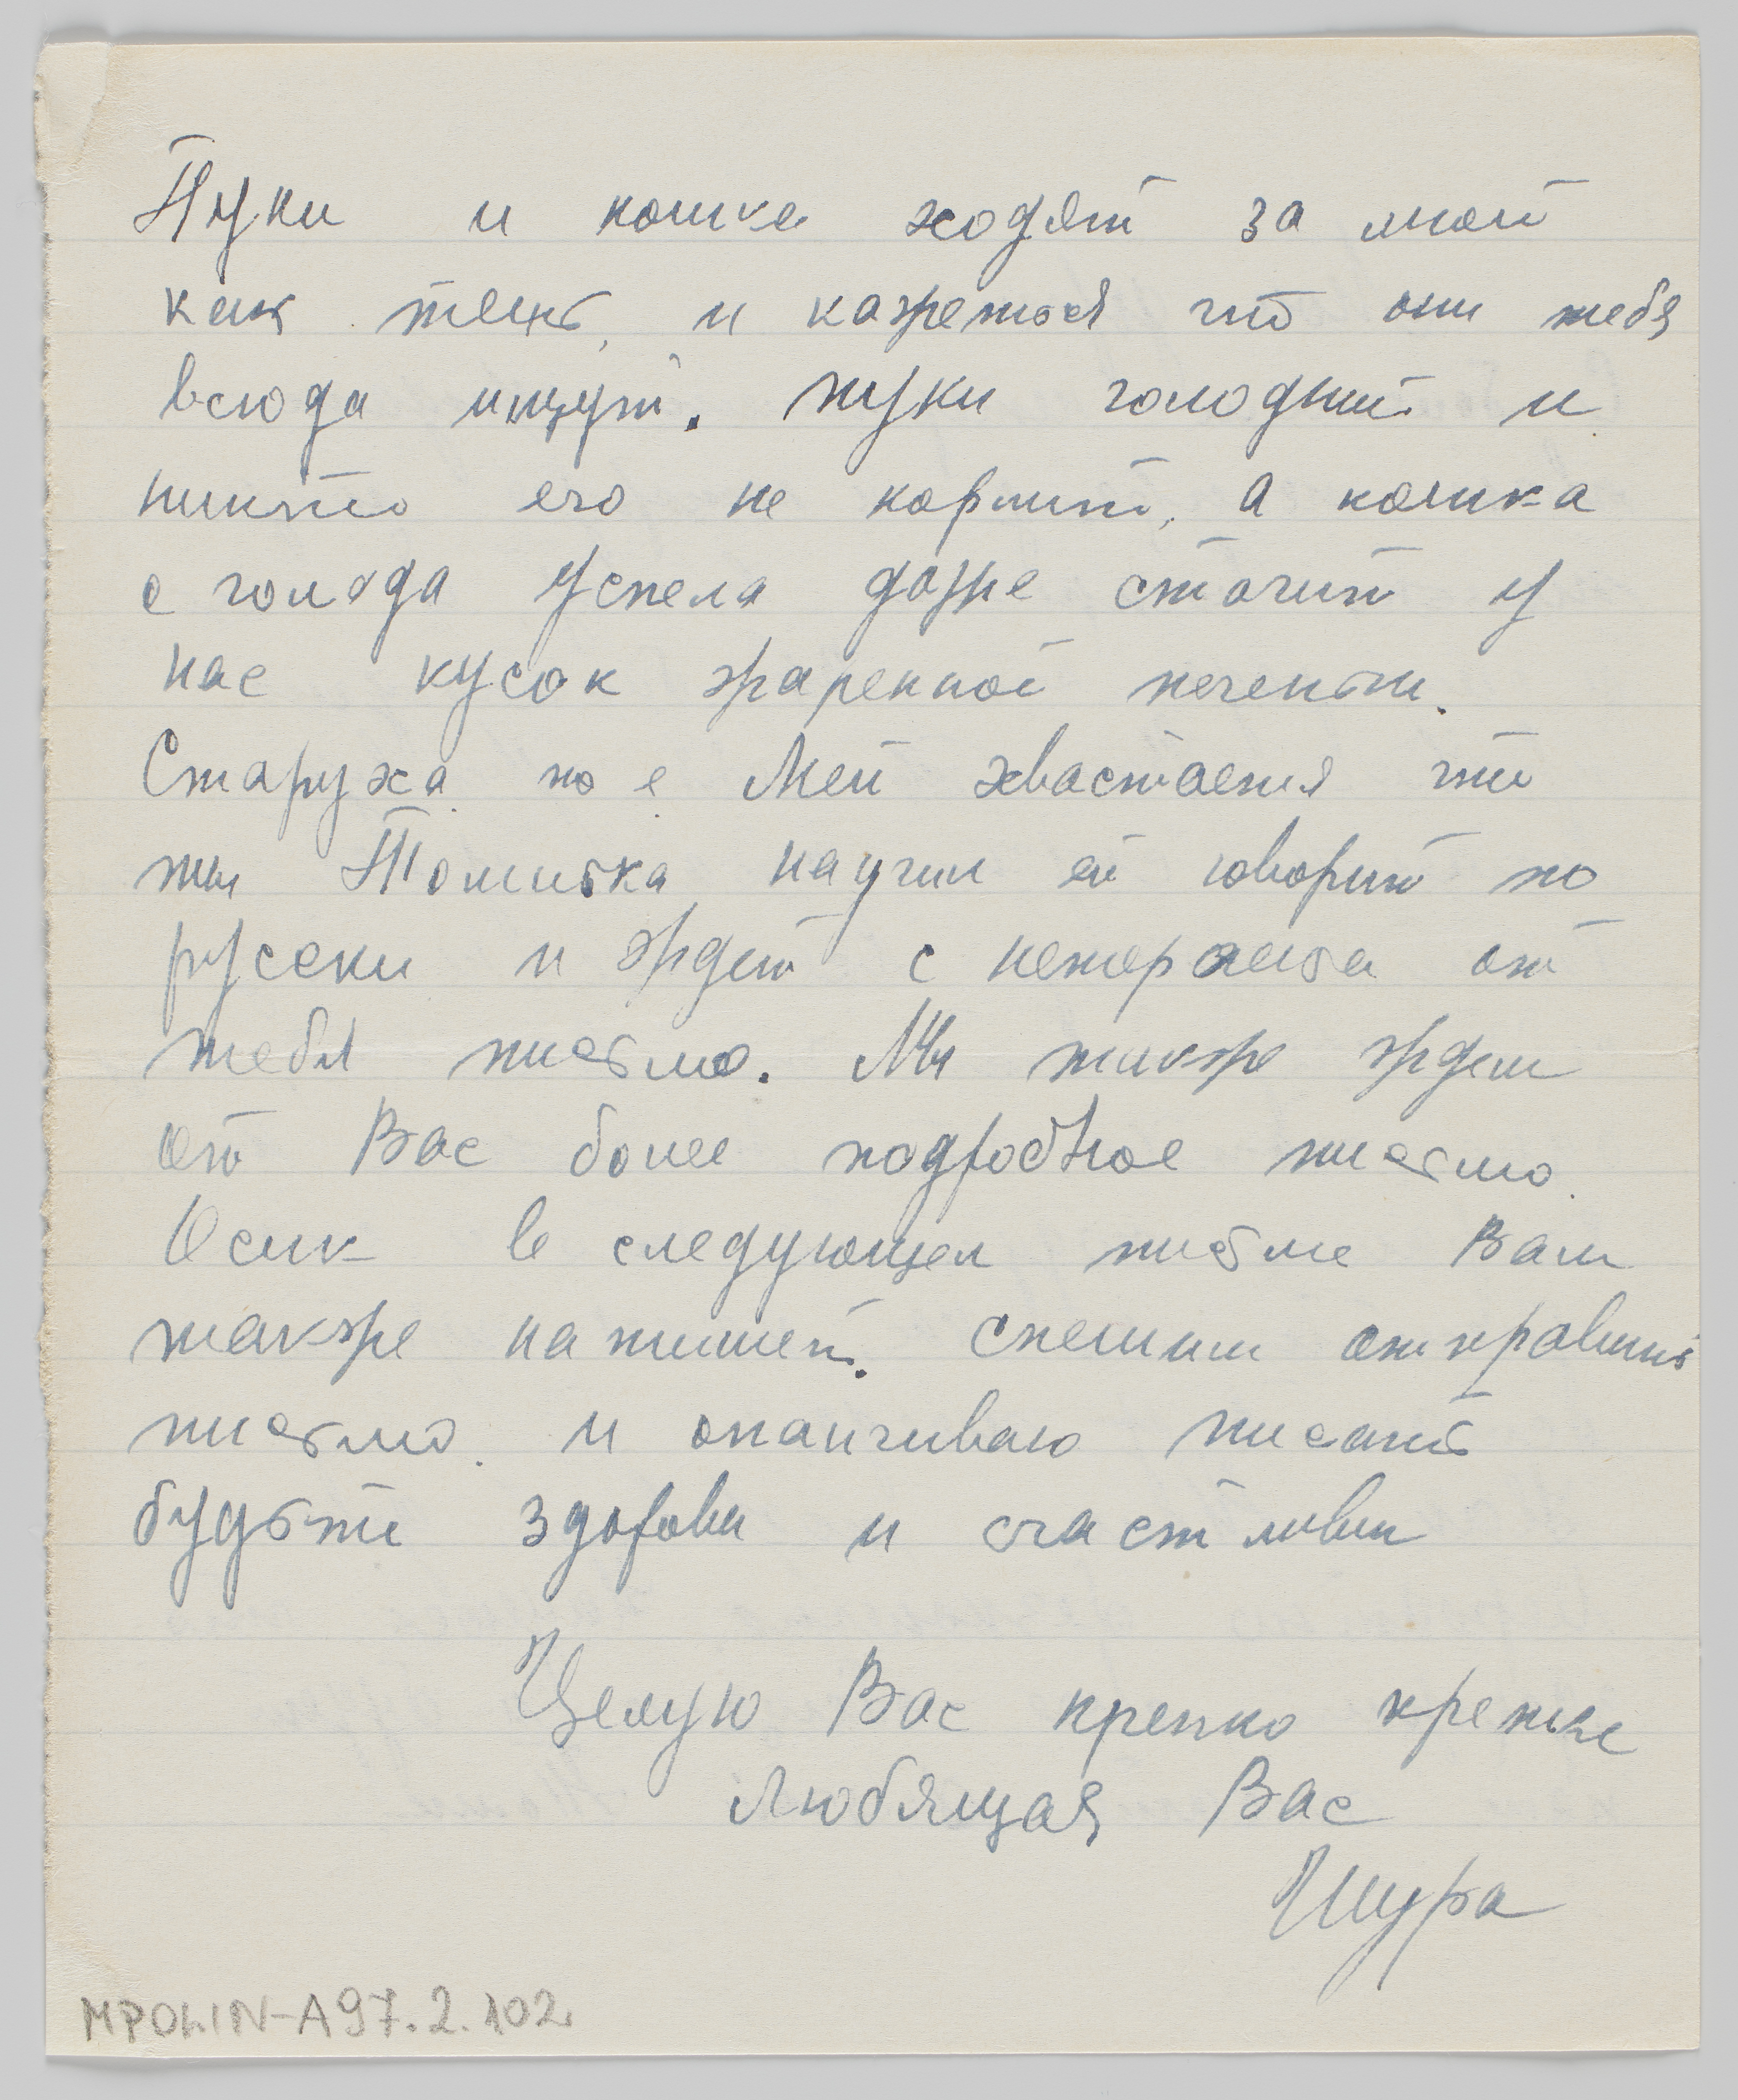 Пуки и кошка ходят за мной
как тень, и кажется что они тебя
всюда ищут. Пуки голодний и
никто его не кормит, а кошка
с голода успела даже стащит у
нас кусок жаренной печенки.
Старуха по е хвастается что
ты Томитка научил ей говорит по
русски и ждет с нетерпением от
тебя письмо. Мы также ждем
от Вас более подробное письмо.
Осик в следующем письме Вам
также напишет. Спешим отправить
письмо. и оканчиваю писать
будьте здоровы и счастливы
Целую Вас крепко крепко
Любящая Вас
Шура
MPOLIN-A97.2.102.